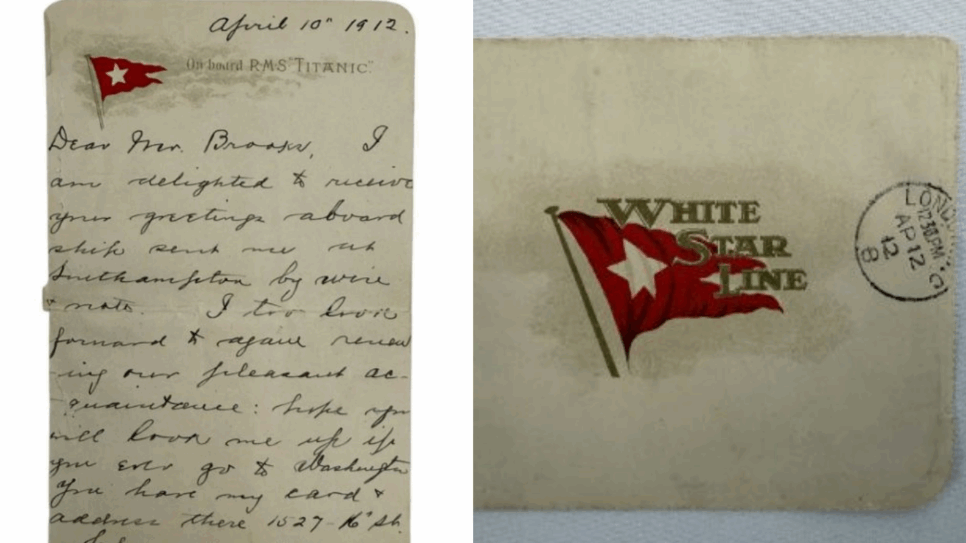 April 10" 1912.
On board R.M.S. "TITANIC."
Dear Mr. Brooks, I
am delighted to receive
your greetings aboard
ship sent me at
Southampton by wire
& note. I too look
forward to again renew
-ing our pleasant ac-
quaintance: hope you
will look me up if
you ever go to Washington
You have my card &
address there 1527-16" St.
WHITE
STAR
LINE
LONDON
12.30PM
AP 12
12
8